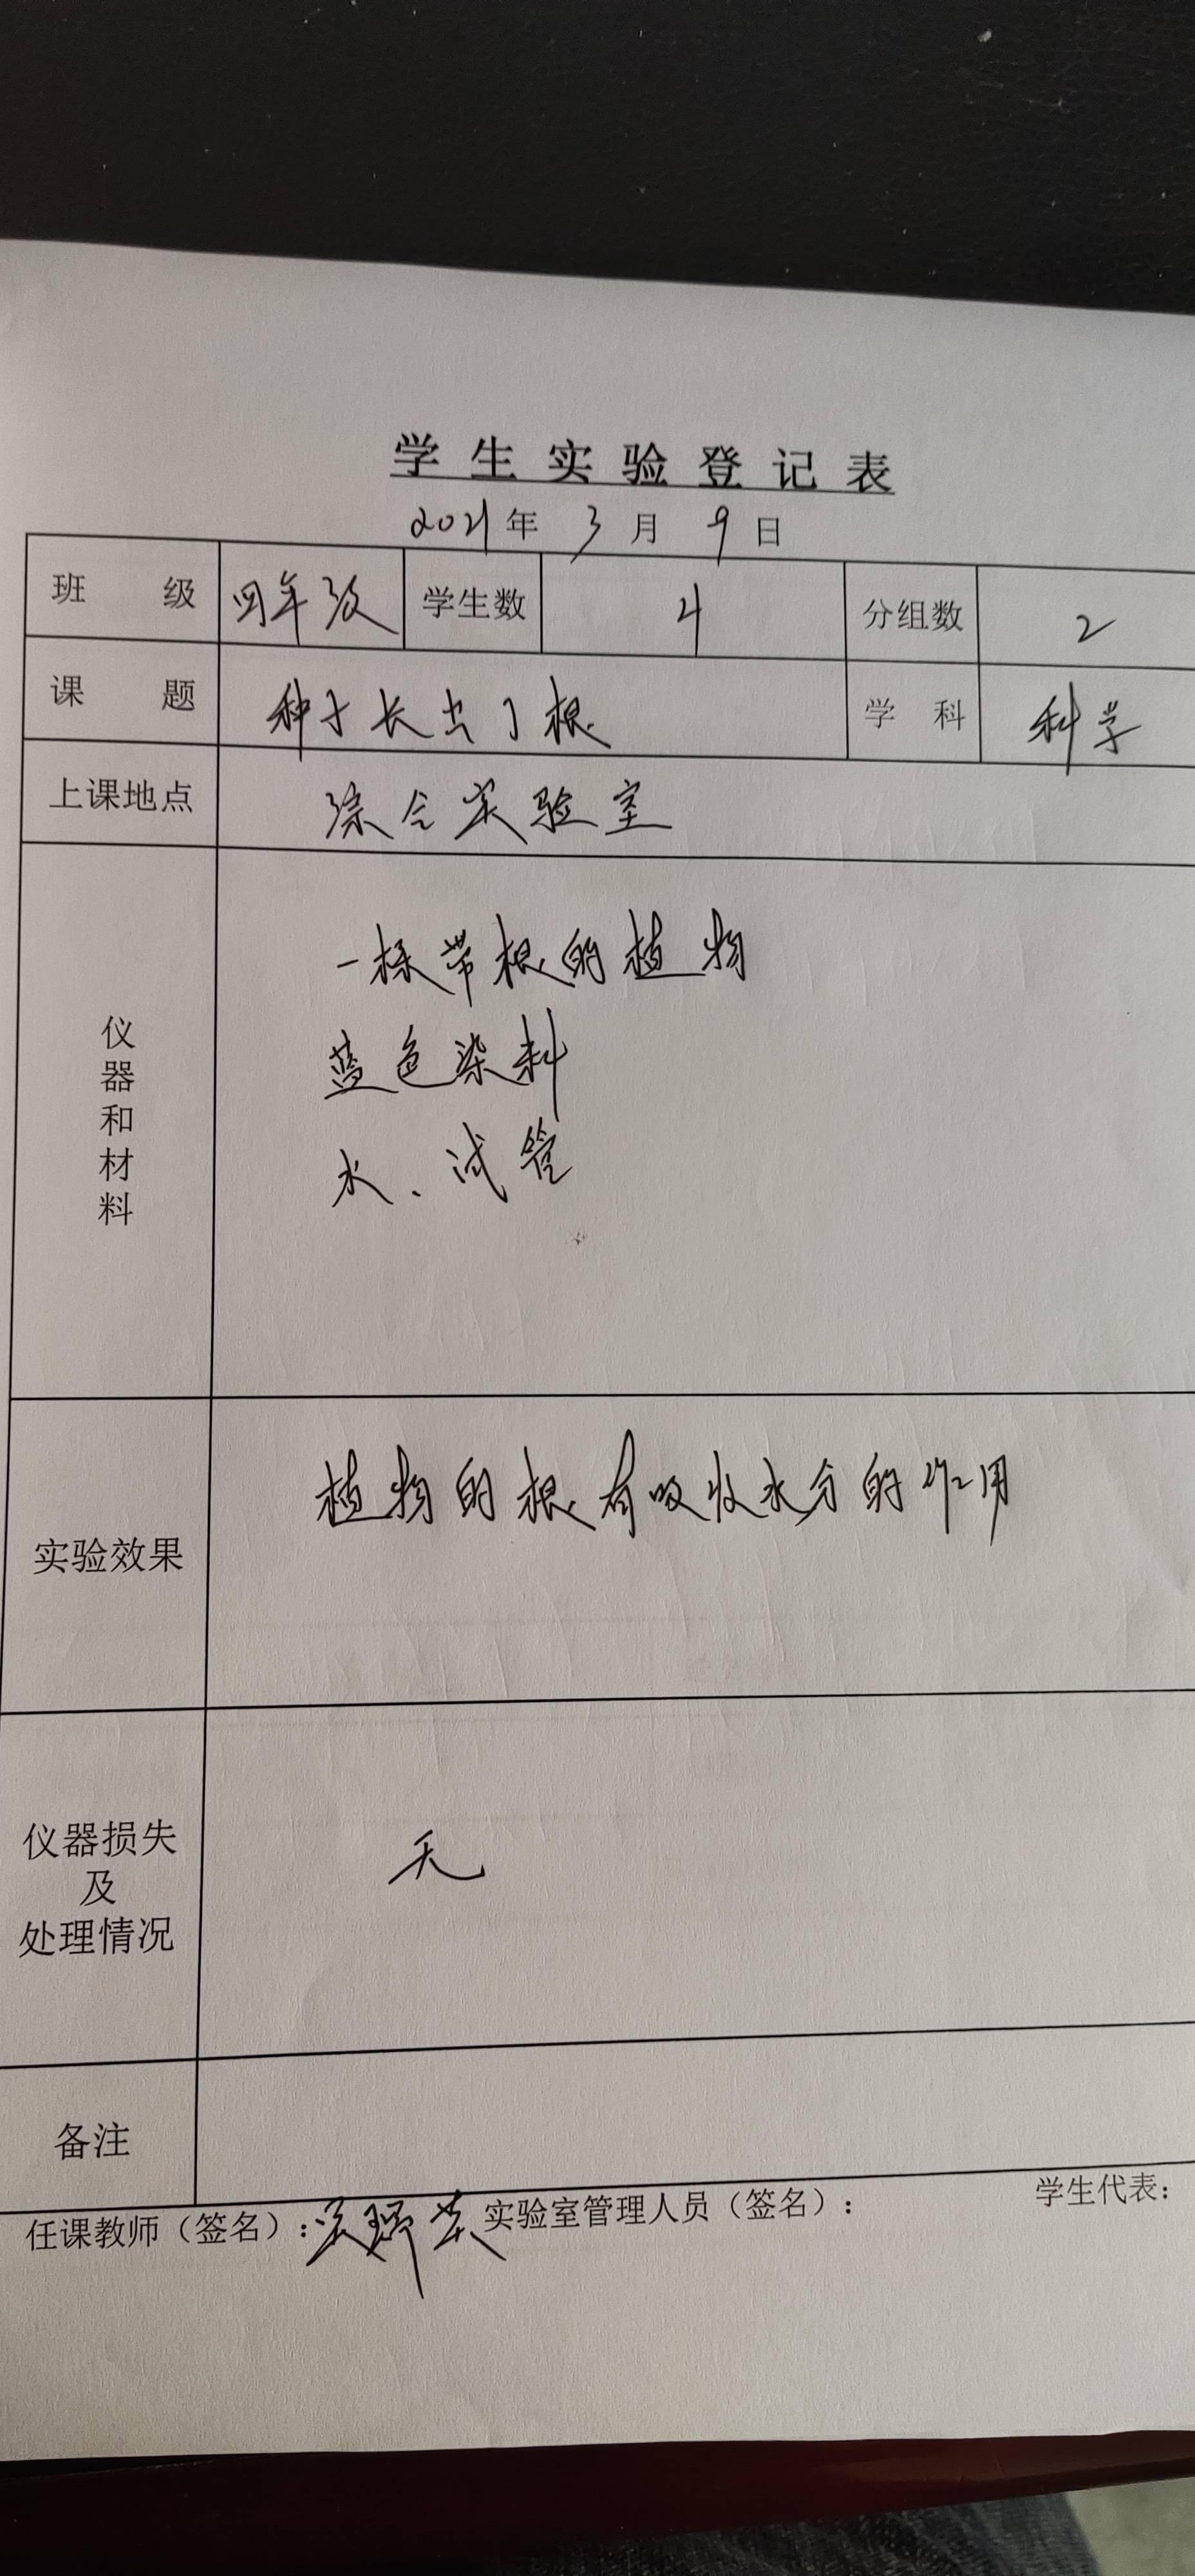 学生实验登记表
2021年 3月 9日
班 级 四年级 学生数 4 分组数 2
课 题 种子长出了根 学 科 科学
上课地点 综合实验室
仪器和材料
一株带根的植物
蓝色染料
水、试管
实验效果 植物的根有吸收水分的作用
仪器损失
及
处理情况
无
备注
任课教师（签名）： 实验室管理人员（签名）： 学生代表：